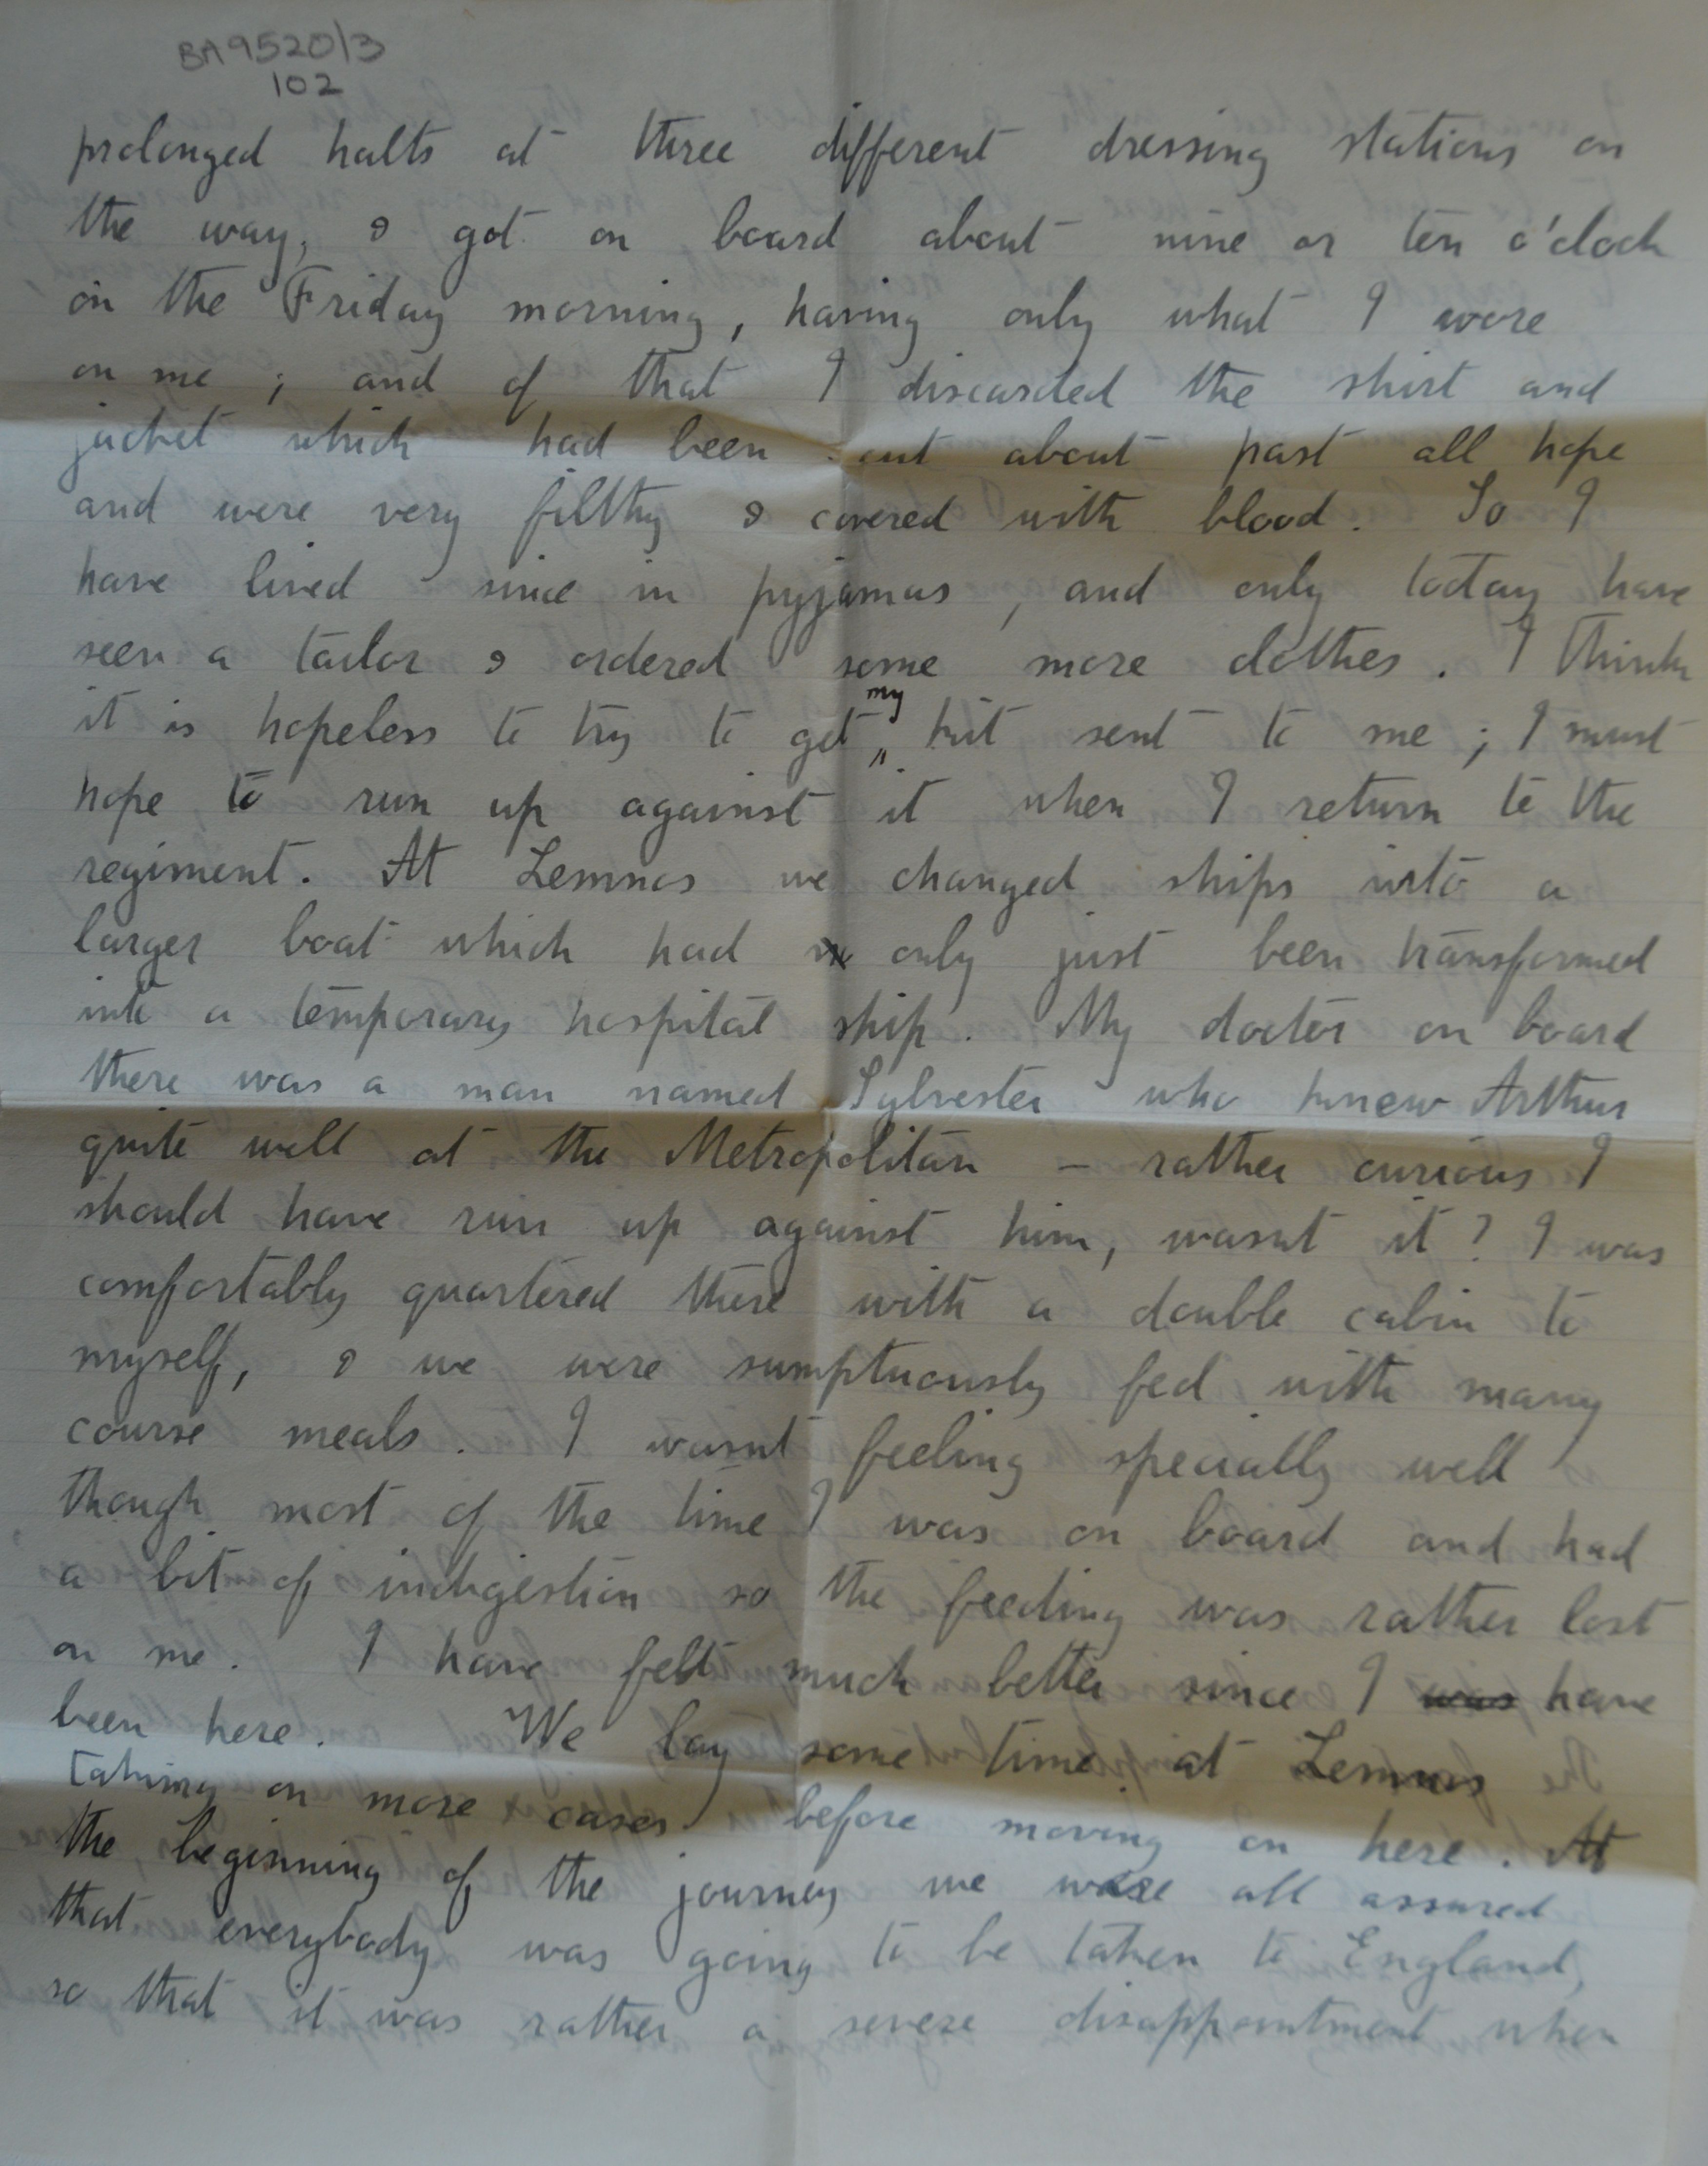 BA9520/3
102
prolonged halts at three different dressing stations on
the way, & got on board about nine or ten o'clock
on the Friday morning, having only what I wore
on me ; and of that I discarded the shirt and
jacket which had been cut about past all hope
and were very filthy & covered with blood. So I
have lived since in pyjamas, and only today have
seen a tailor & ordered some more clothes. I think
it is hopeless to try to get my kit sent to me ; I must
hope to run up against it when I return to the
regiment. At Lemnos we changed ships into a
larger boat which had only just been transformed
into a temporary hospital ship. My doctor on board
there was a man named Sylvester who knew Arthur
quite well at the Metropolitan – rather curious I
should have run up against him, wasnt it? I was
comfortably quartered there with a double cabin to
myself, & we were sumptuously fed with many
course meals. I wasnt feeling specially well
though most of the time I was on board and had
a bit of indigestion so the feeding was rather lost
on me. I have felt much better since I was have
been here. We lay some time at Lemnos
taking on more cases before moving on here. At
the beginning of the journey we were all assured
that everybody was going to be taken to England,
so that it was rather a severe disappointment when